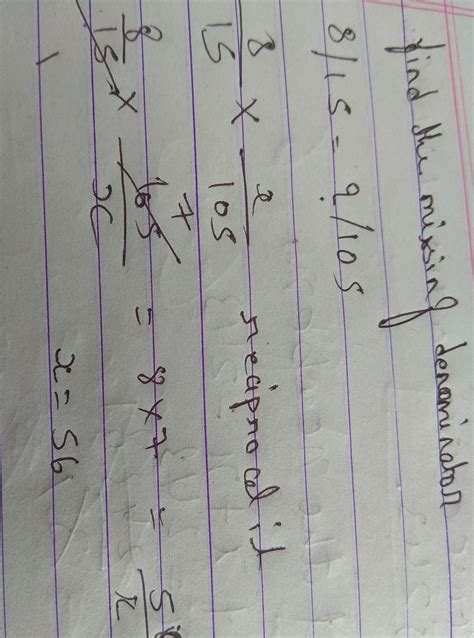 find the missing denominator
8/15 = ?/105
8/15 × x/105 reciprocal it
8/15 × 105/x = 8 × 7 = 56/x
7
x = 56